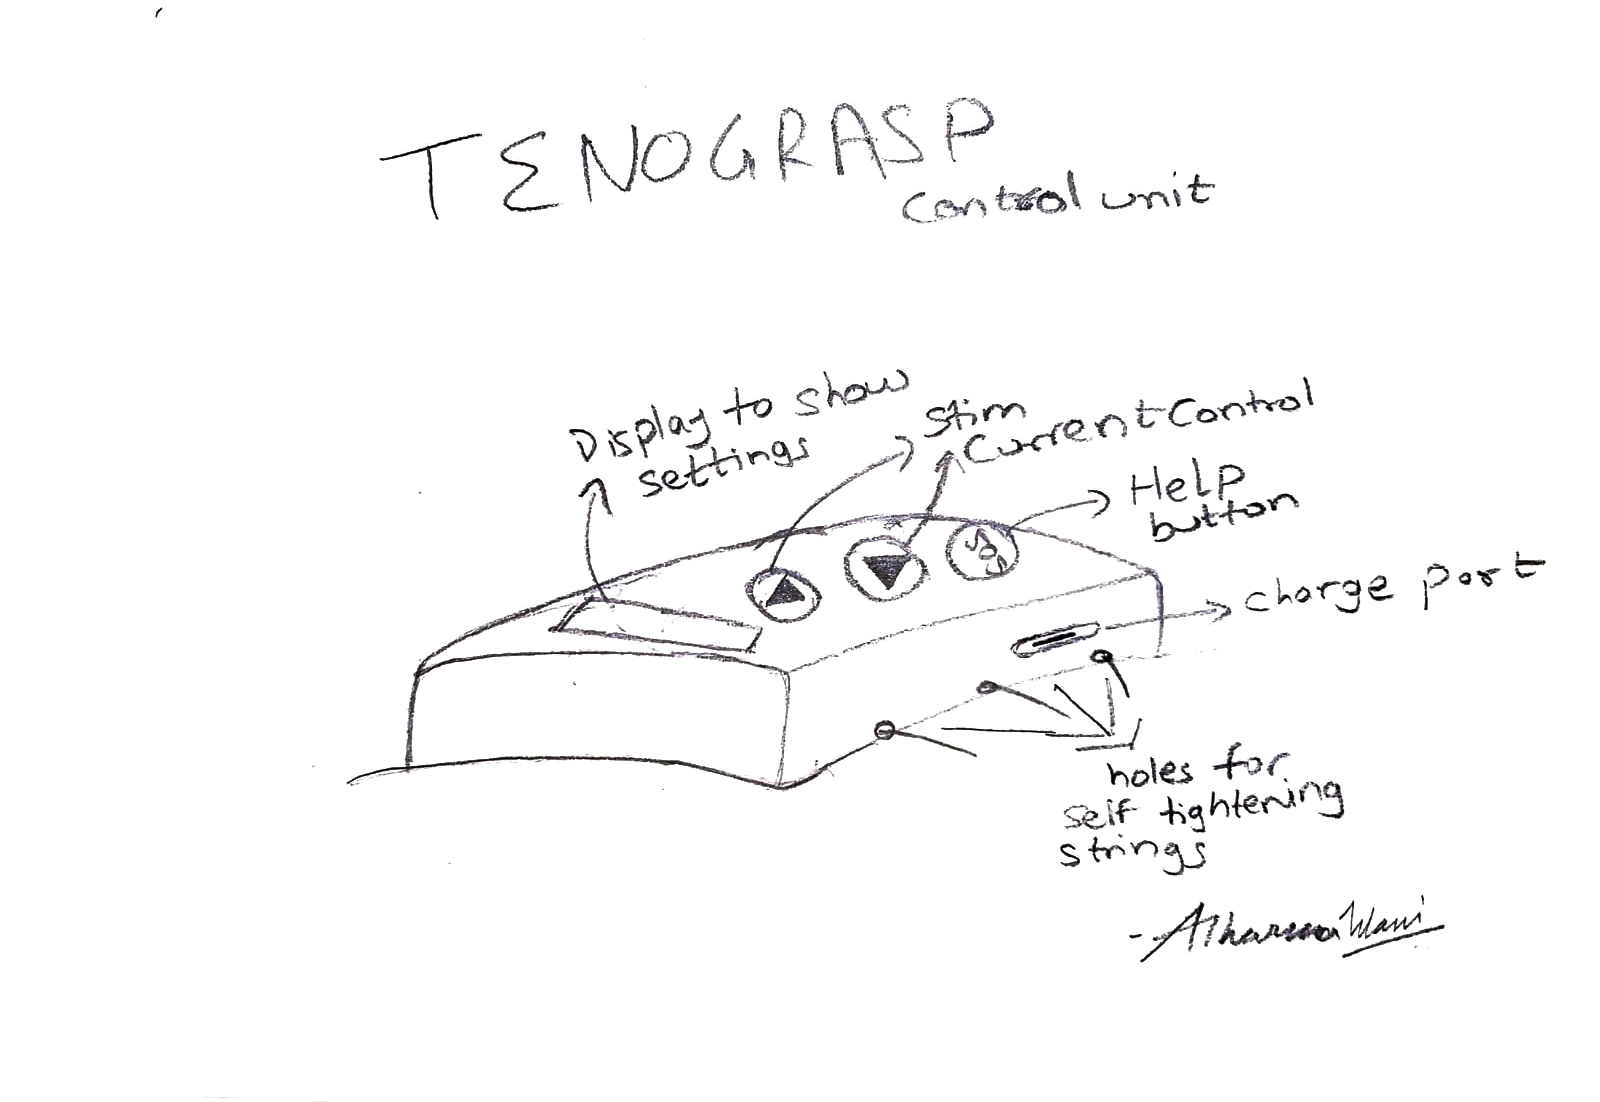 TENOGRASP
Control unit
Display to show
settings
Stim
Current Control
Help
button
SOS
charge port
holes for
self tightening
strings
- Atharva Wani